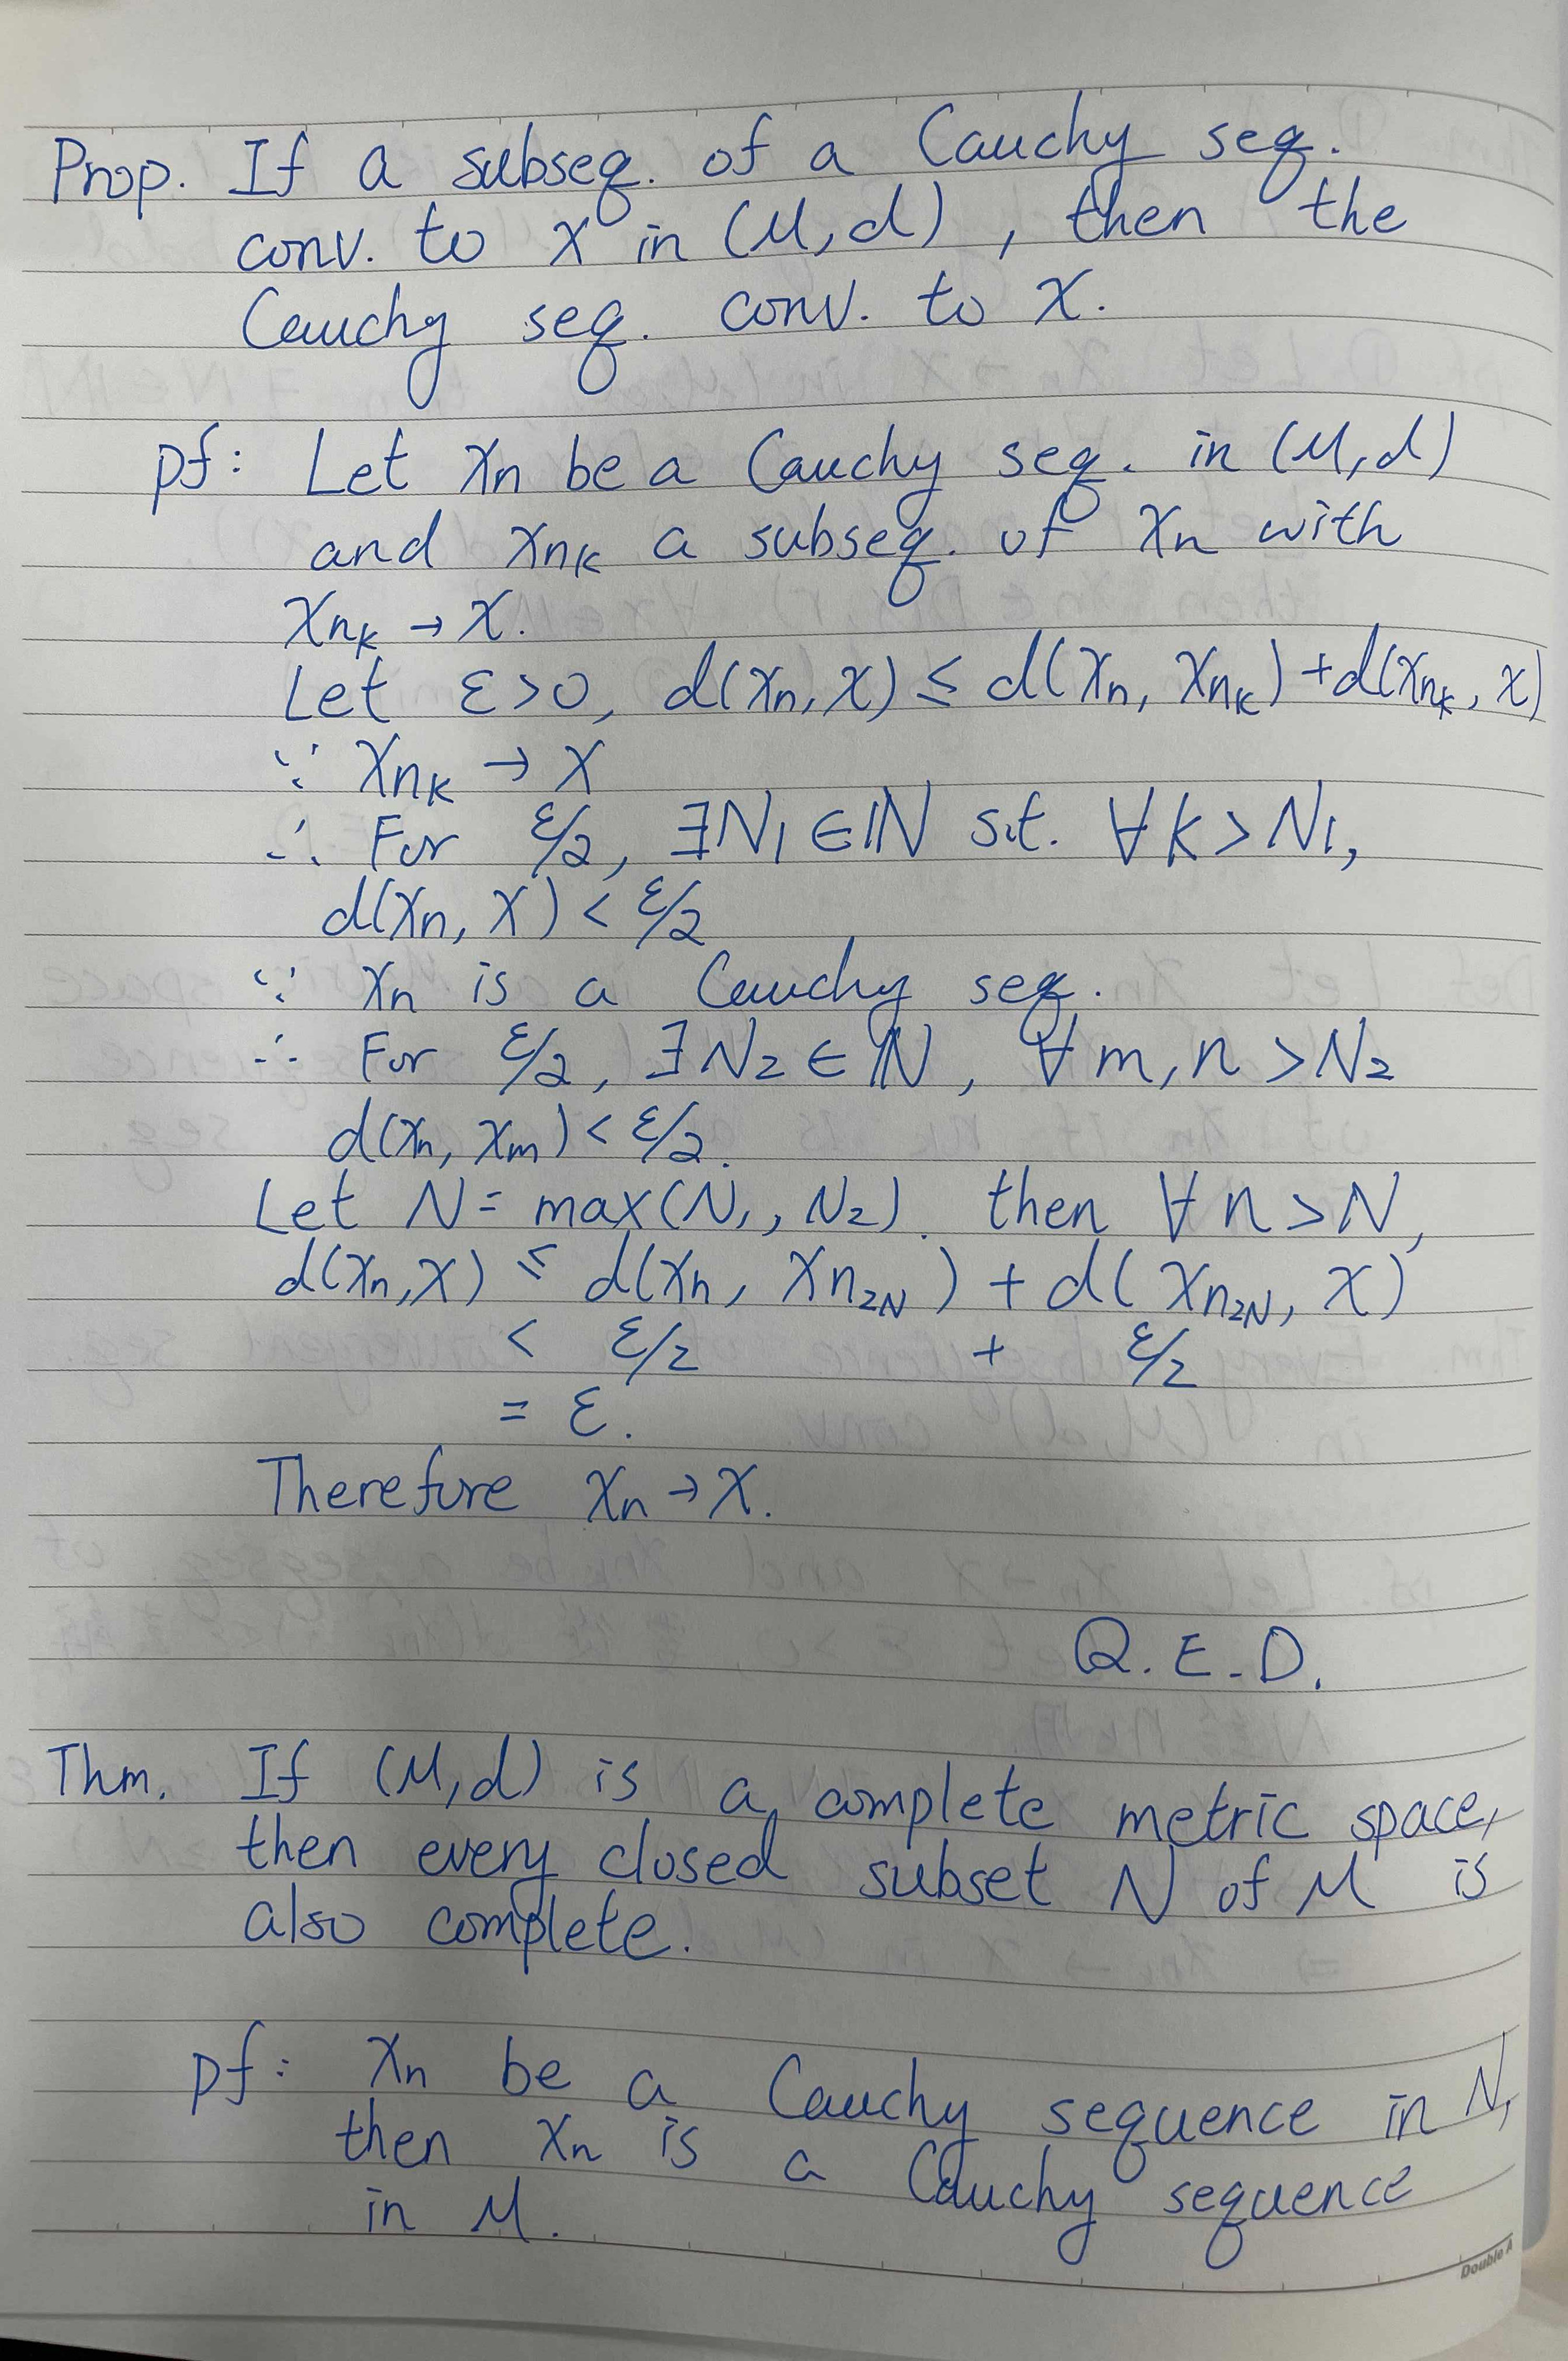 Prop. If a subseq. of a Cauchy seq.
conv. to x in (M,d), then the
Cauchy seq. conv. to x.
pf: Let xn be a Cauchy seq. in (M,d)
and xnk a subseq. of xn with
xnk → x.
Let ε>0, d(xn, x) ≤ d(xn, xnk) + d(xnk, x)
∵ xnk → x
∴ For ε/2, ∃N1 ∈ ℕ s.t. ∀k > N1,
d(xn, x) < ε/2
∵ xn is a Cauchy seq.
∴ For ε/2, ∃N2 ∈ ℕ, ∀m, n > N2
d(xn, xm) < ε/2.
Let N = max(N1, N2). then ∀n > N,
d(xn, x) ≤ d(xn, xn2N) + d(xn2N, x)
< ε/2 + ε/2
= ε.
Therefore xn → x.
Q.E.D.
Thm. If (M,d) is a complete metric space,
then every closed subset N of M is
also complete.
pf: xn be a Cauchy sequence in N,
then xn is a Cauchy sequence
in M.
Double A